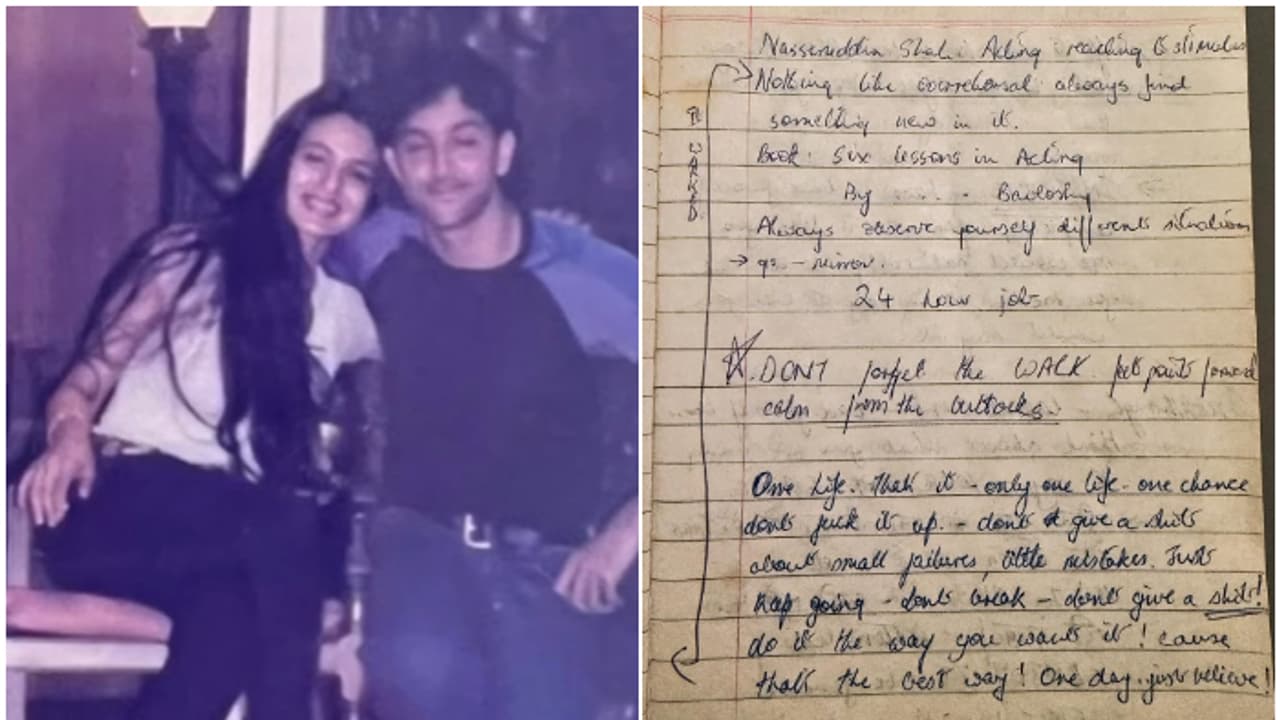 Nasseruddin Shah: Acting reacting to stimulus
Nothing like overrehersal always find
something new in it.
Book: Six lessons in Acting
By -
Always observe yourself different situations
→ - mirror.
24 hour jobs
DONT forget the WALK. feet points forward
calm from the buttocks.
One life. that it - only one life - one chance
dont fuck it up. - dont give a shit
about small failures, little mistakes. Just
keep going - dont break - dont give a shit!
do it the way you want it! cause
that the best way! One day. just believe!